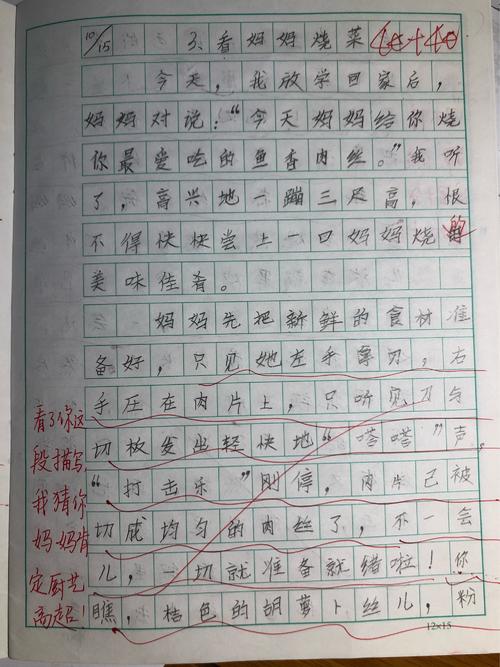 10/15 3、看妈妈烧菜 40+40
今天，我放学回家后，
妈妈对说："今天妈妈给你烧
你最爱吃的鱼香肉丝。"我听
了，高兴地一蹦三尺高，恨
不得快快尝上一口妈妈烧的
美味佳肴。
妈妈先把新鲜的食材准
备好，只见她左手拿刀，右
手压在肉片上，只听见刀与
切板发出轻快地"嗒嗒"声，
"打击乐"刚停，肉片已被
切成均匀的肉丝了，不一会
儿，一切就准备就绪啦！你
瞧，桔色的胡萝卜丝儿，粉
看了你这
段描写，
我猜你
妈妈肯
定厨艺
高超！
12×15